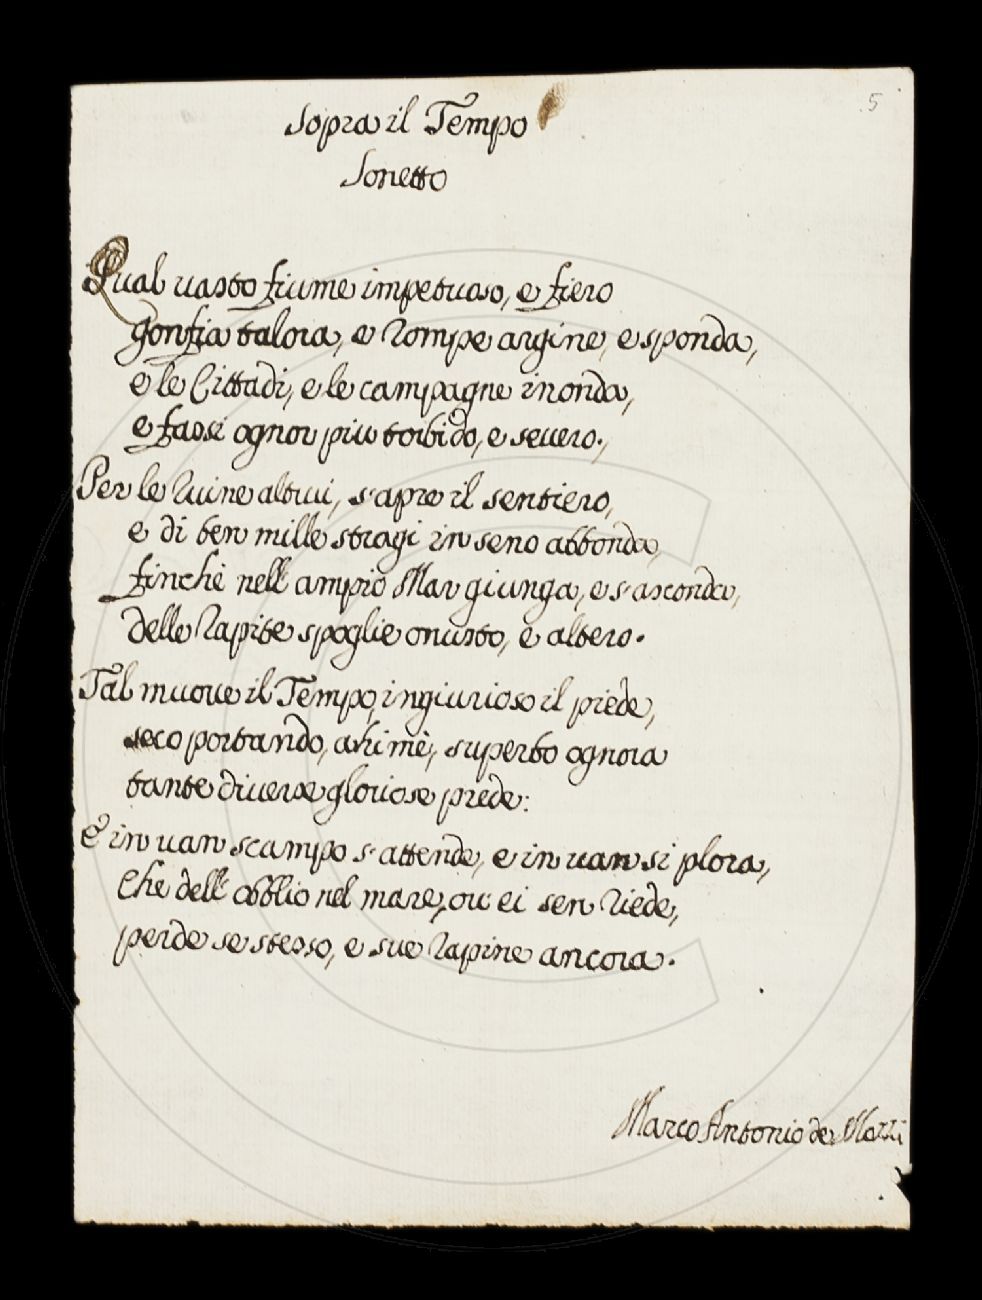 5
Sopra il Tempo
Sonetto
Qual uasto fiume impetuoso, e fiero
gonfia talora, e rompe argine, e sponda,
e le Cittadi, e le campagne inonda,
e fassi ognor piu torbido, e seuero.,
Per le ruine altrui, s'apre il sentiero,
e di ben mille stragi in seno abbonda,
finchè nell'ampio Mar giunga, e s'asconda,
delle rapite spoglie onusto, e altero.
Tal muoue il Tempo, ingiurioso il piede,
seco portando, ahimè, superbo ognora
tante diuerse gloriose prede:
E in uan scampo s'attende, e in uan si plora,
Che dell'obblio nel mare, ou'ei sen riede,
perde se stesso, e sue rapine ancora.
Marco Antonio de Mozzi